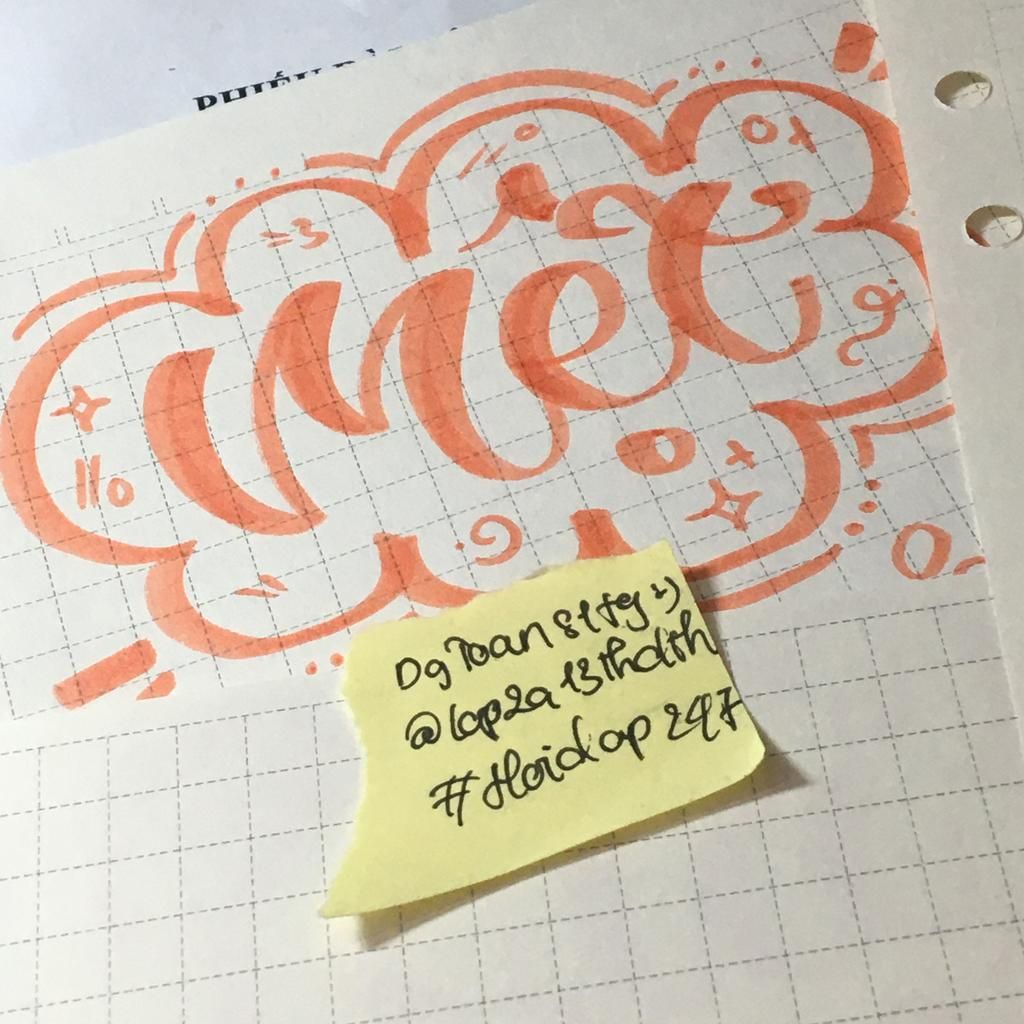 PHIẾU
Mec
DgToan81fg :)
@lop2a13thdth
#Hoidap247